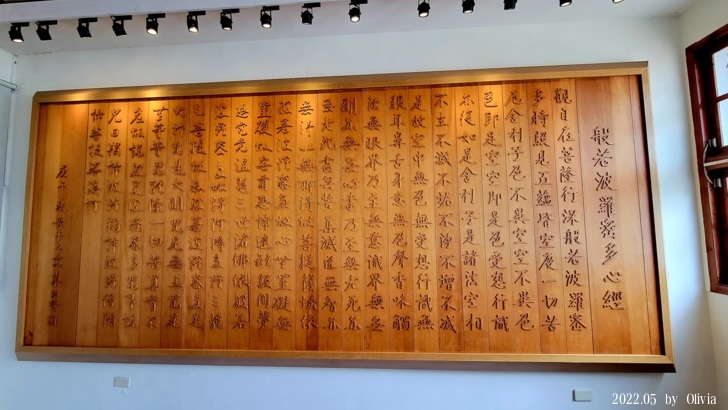 般若波羅蜜多心經
觀自在菩薩行深般若波羅蜜
多時照見五蘊皆空度一切苦
厄舍利子色不異空空不異色
色即是空空即是色受想行識
亦復如是舍利子是諸法空相
不生不滅不垢不淨不增不減
是故空中無色無受想行識無
眼耳鼻舌身意無色聲香味觸
法無眼界乃至無意識界無無
明亦無無明盡乃至無老死亦
無老死盡無苦集滅道無智亦
無得以無所得故菩提薩埵依
般若波羅蜜多故心無罣礙無
罣礙故無有恐怖遠離顛倒夢
想究竟涅槃三世諸佛依般若
波羅蜜多故得阿耨多羅三藐
三菩提故知般若波羅蜜多是
大神咒是大明咒是無上咒是
無等等咒能除一切苦真實不
虛故說般若波羅蜜多咒即說
2022.05 by Olivia